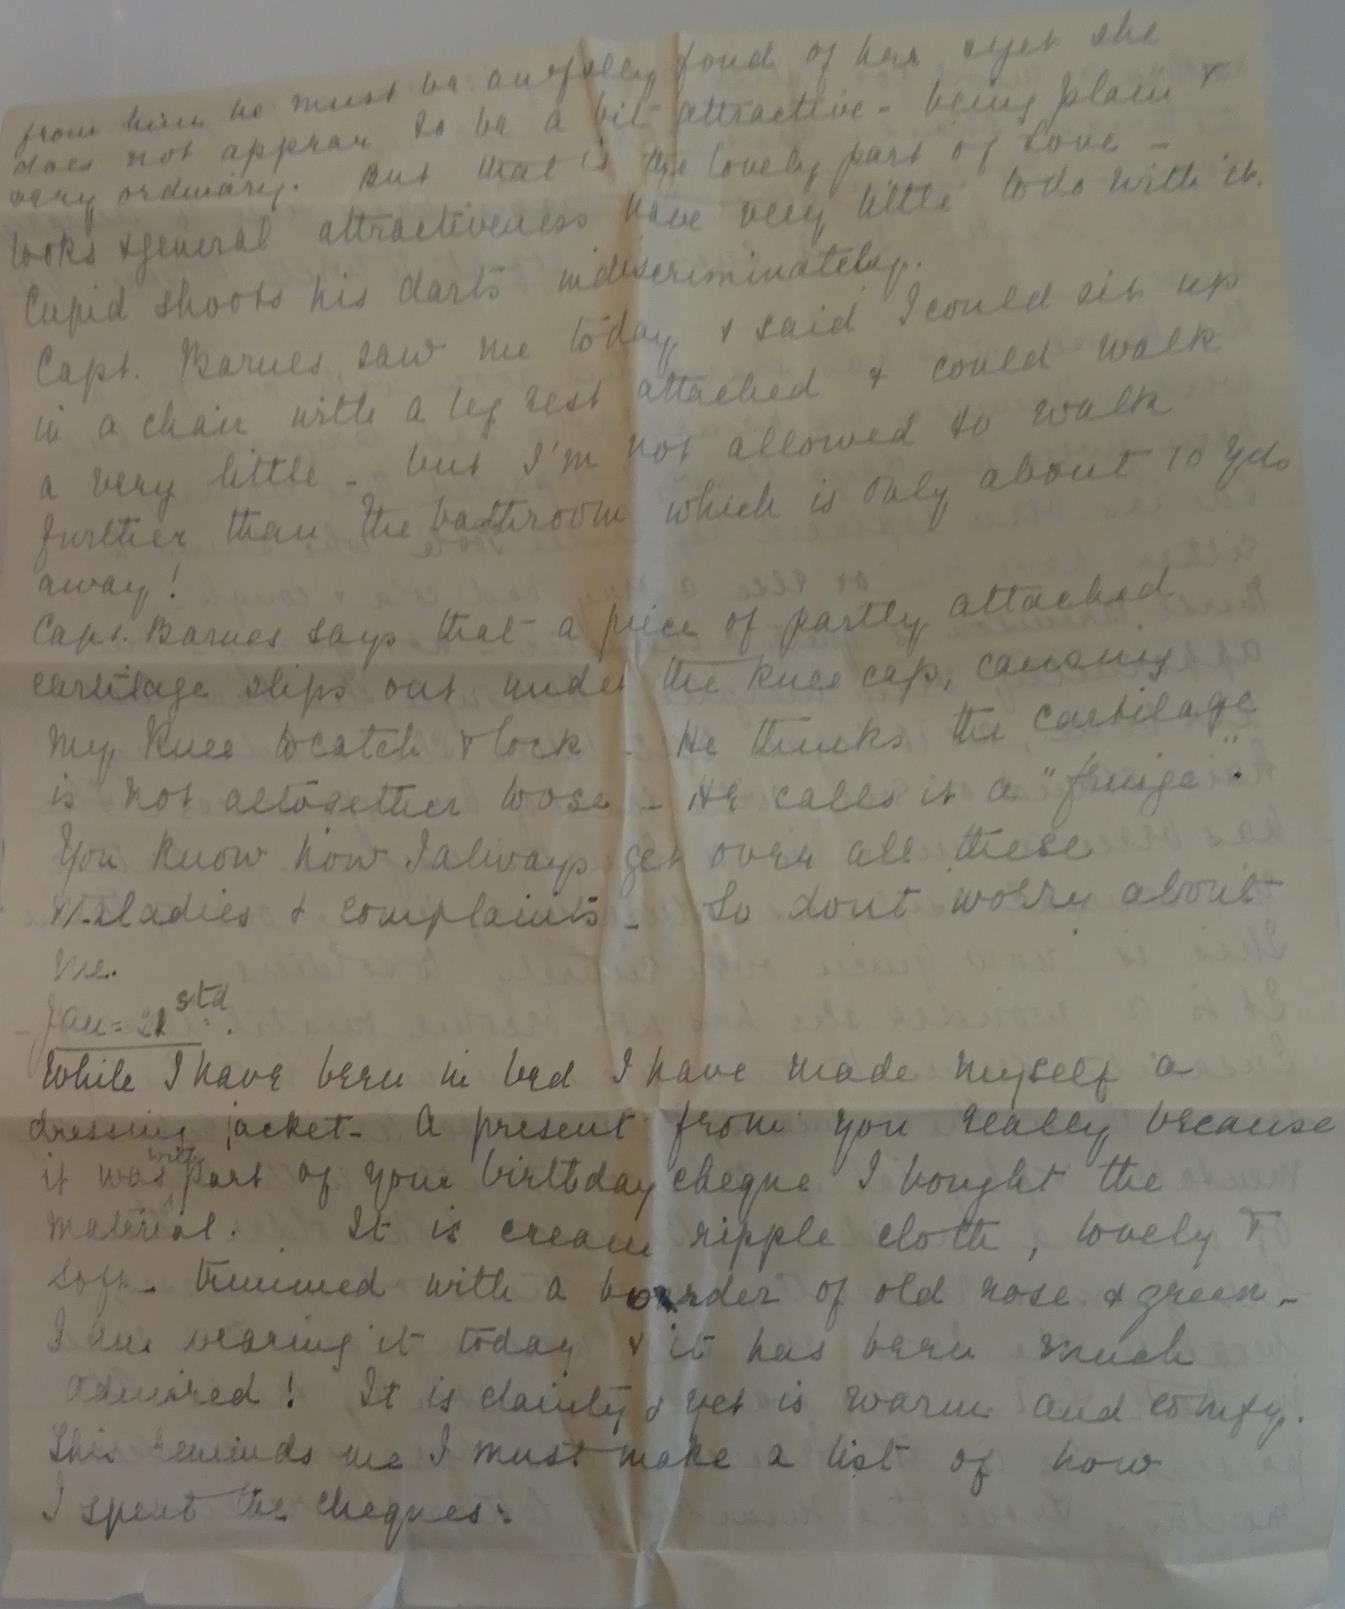 from him he must be awfully fond of her & yet she
does not appear to be a bit attractive - being plain &
very ordinary. But that is the lovely part of Love -
looks & general attractiveness have very little to do with it.
Cupid shoots his darts indiscriminately.
Capt. Barnes saw me today & said I could sit up
in a chair with a leg rest attached & could walk
a very little - but I'm not allowed to walk
further than the bathroom which is only about 10 yds
away!
Capt. Barnes says that a piece of partly attached
cartilage slips out under the knee cap, causing
my knee to catch & lock - He thinks the cartilage
is not altogether loose - He calls it a "fringe".
You know how I always get over all these
maladies & complaints - So dont worry about
me.
Jan = 21st.
While I have been in bed I have made myself a
dressing jacket - A present from you really because
it was with part of your birthday cheque I bought the
material. It is cream ripple cloth, lovely &
soft - trimmed with a border of old rose & green -
I am wearing it today & it has been much
admired! It is dainty & yet is warm and comfy.
This reminds me I must make a list of how
I spent the cheques.